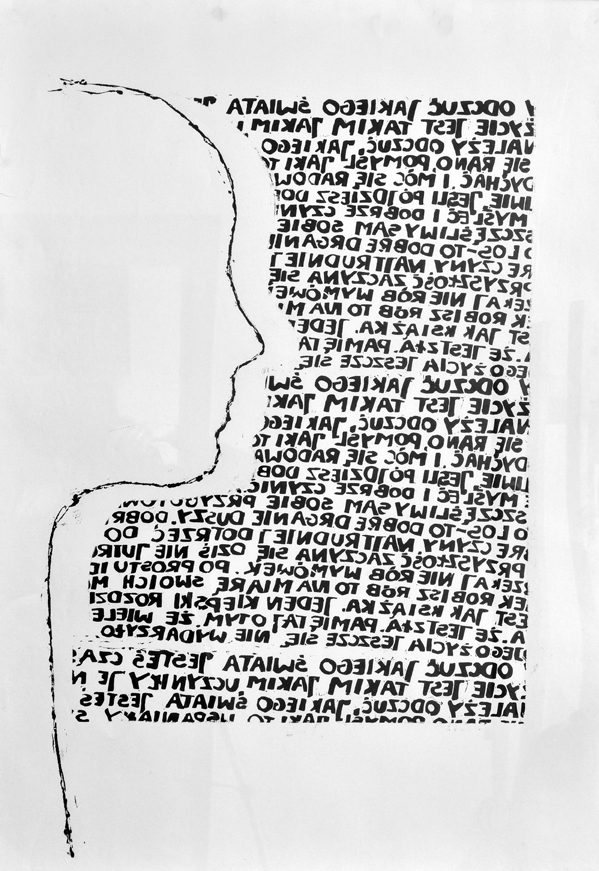 Y ODCZUĆ JAKIEGO ŚWIATA
ŻYCIE JEST TAKIM JAKIM
NALEŻY ODCZUĆ, JAKIEGO
SIĘ RANO POMYŚL JAKI
DYCHAĆ. I MÓC SIĘ RADOW
LIWIE, JEŚLI PÓJDZIESZ DO
MYŚLEĆ I DOBRZE CZYNI
SZCZĘŚLIWY SAM SOBIE
O LOS-TO DOBRE DRGANI
RE CZYNY. NAJTRUDNIEJ
PRZYSZŁOŚĆ ZACZYNA SIĘ
RZEKAJ NIE RÓB WYMÓWEK
EK ROBISZ RÓB TO NA M
ST JAK KSIĄŻKA. JEDE
A. ŻE JEST ZŁA. PAMIĘTA
JEGO ŻYCIA JESZCZE SIĘ
Y ODCZUĆ JAKIEGO ŚW
ŻYCIE JEST TAKIM JAK
NALEŻY ODCZUĆ, JAKIEG
SIĘ RANO POMYŚL JAKI
DYCHAĆ. I MÓC SIĘ RADOWA
LIWIE, JEŚLI PÓJDZIESZ DOB
MYŚLEĆ I DOBRZE CZYNIĆ
SZCZĘŚLIWY SAM SOBIE PRZYGOTOW
O LOS-TO DOBRE DRGANIE DUSZY. DOBR
RE CZYNY. NAJTRUDNIEJ DOTRZEĆ DO
PRZYSZŁOŚĆ ZACZYNA SIĘ DZIŚ NIE JUTRO
RZEKAJ NIE RÓB WYMÓWEK. PO PROSTU ID
EK ROBISZ RÓB TO NA MIARĘ SWOICH M
EST JAK KSIĄŻKA. JEDEN KIEPSKI ROZDZI
A. ŻE JEST ZŁA. PAMIĘTAJ O TYM, ŻE WIELE
JEGO ŻYCIA JESZCZE SIĘ NIE WYDARZYŁO
ODCZUĆ JAKIEGO ŚWIATA JESTEŚ CZĄS
ŻYCIE JEST TAKIM JAKIM UCZYNIMY JE N
NALEŻY ODCZUĆ, JAKIEGO ŚWIATA JESTEŚ
RANO POMYŚL JAKI TO WSPANIAŁY S